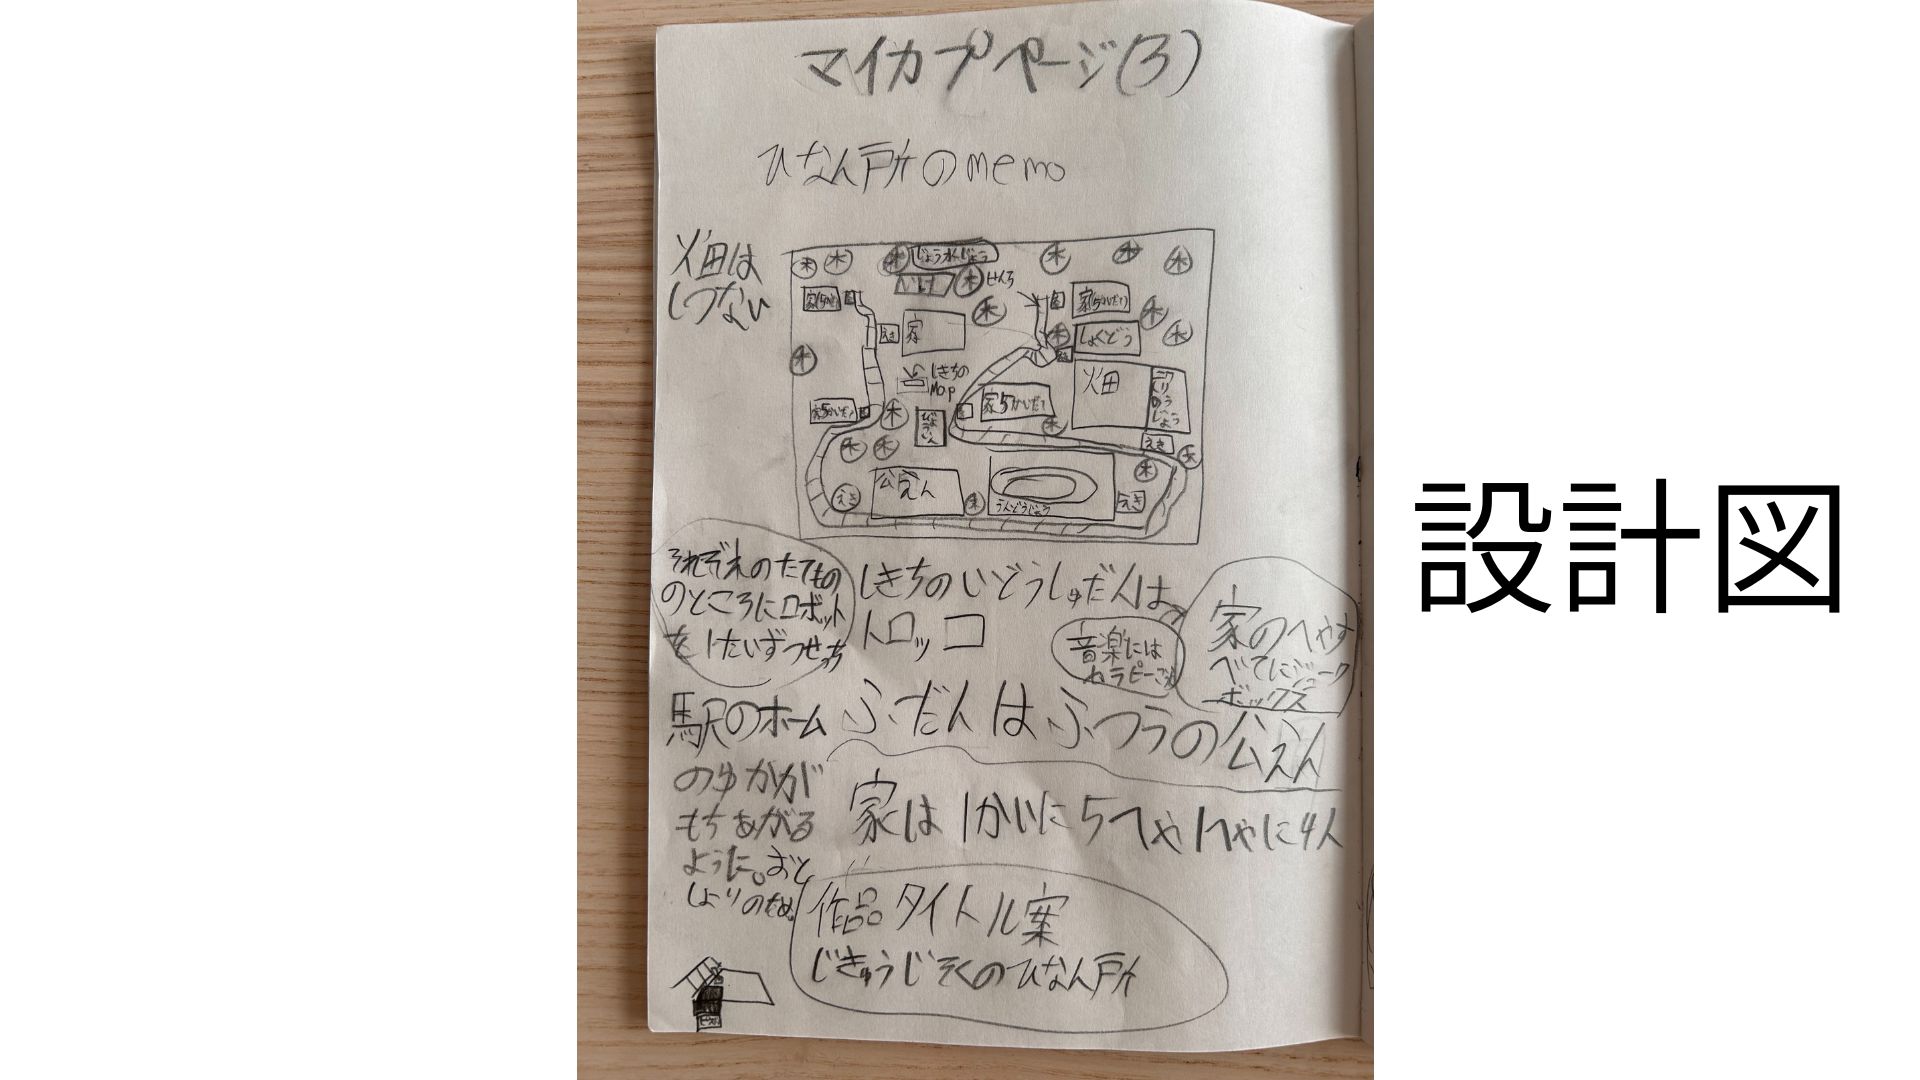 マイカプページ(3)
ひなん所のmemo
畑は
しつない
木
木
木
じょうすいじょう
木
木
木
いけ
木
せんろ
家(5かい)
家(5かいだて)
木
木
えき
家
木
しょくどう
木
木
しきちの
Map
畑
にわとりのうじょう
家5かいだて
木
びょういん
家5かいだて
木
木
木
えき
木
木
公えん
えき
木
うんどうじょう
えき
それぞれのたてもの
のところにロボット
を1たいずつせっち
しきちのいどうしゅだんは
トロッコ
音楽には
家のへやす
べてにジューク
ボックス
駅のホーム
のゆかが
もちあがる
ように。おと
しよりのため。
ふだんはふつうの公えん
家は1かいに5へや1へやに4人
作品タイトル案
じきゅうじそくのひなん所
設計図